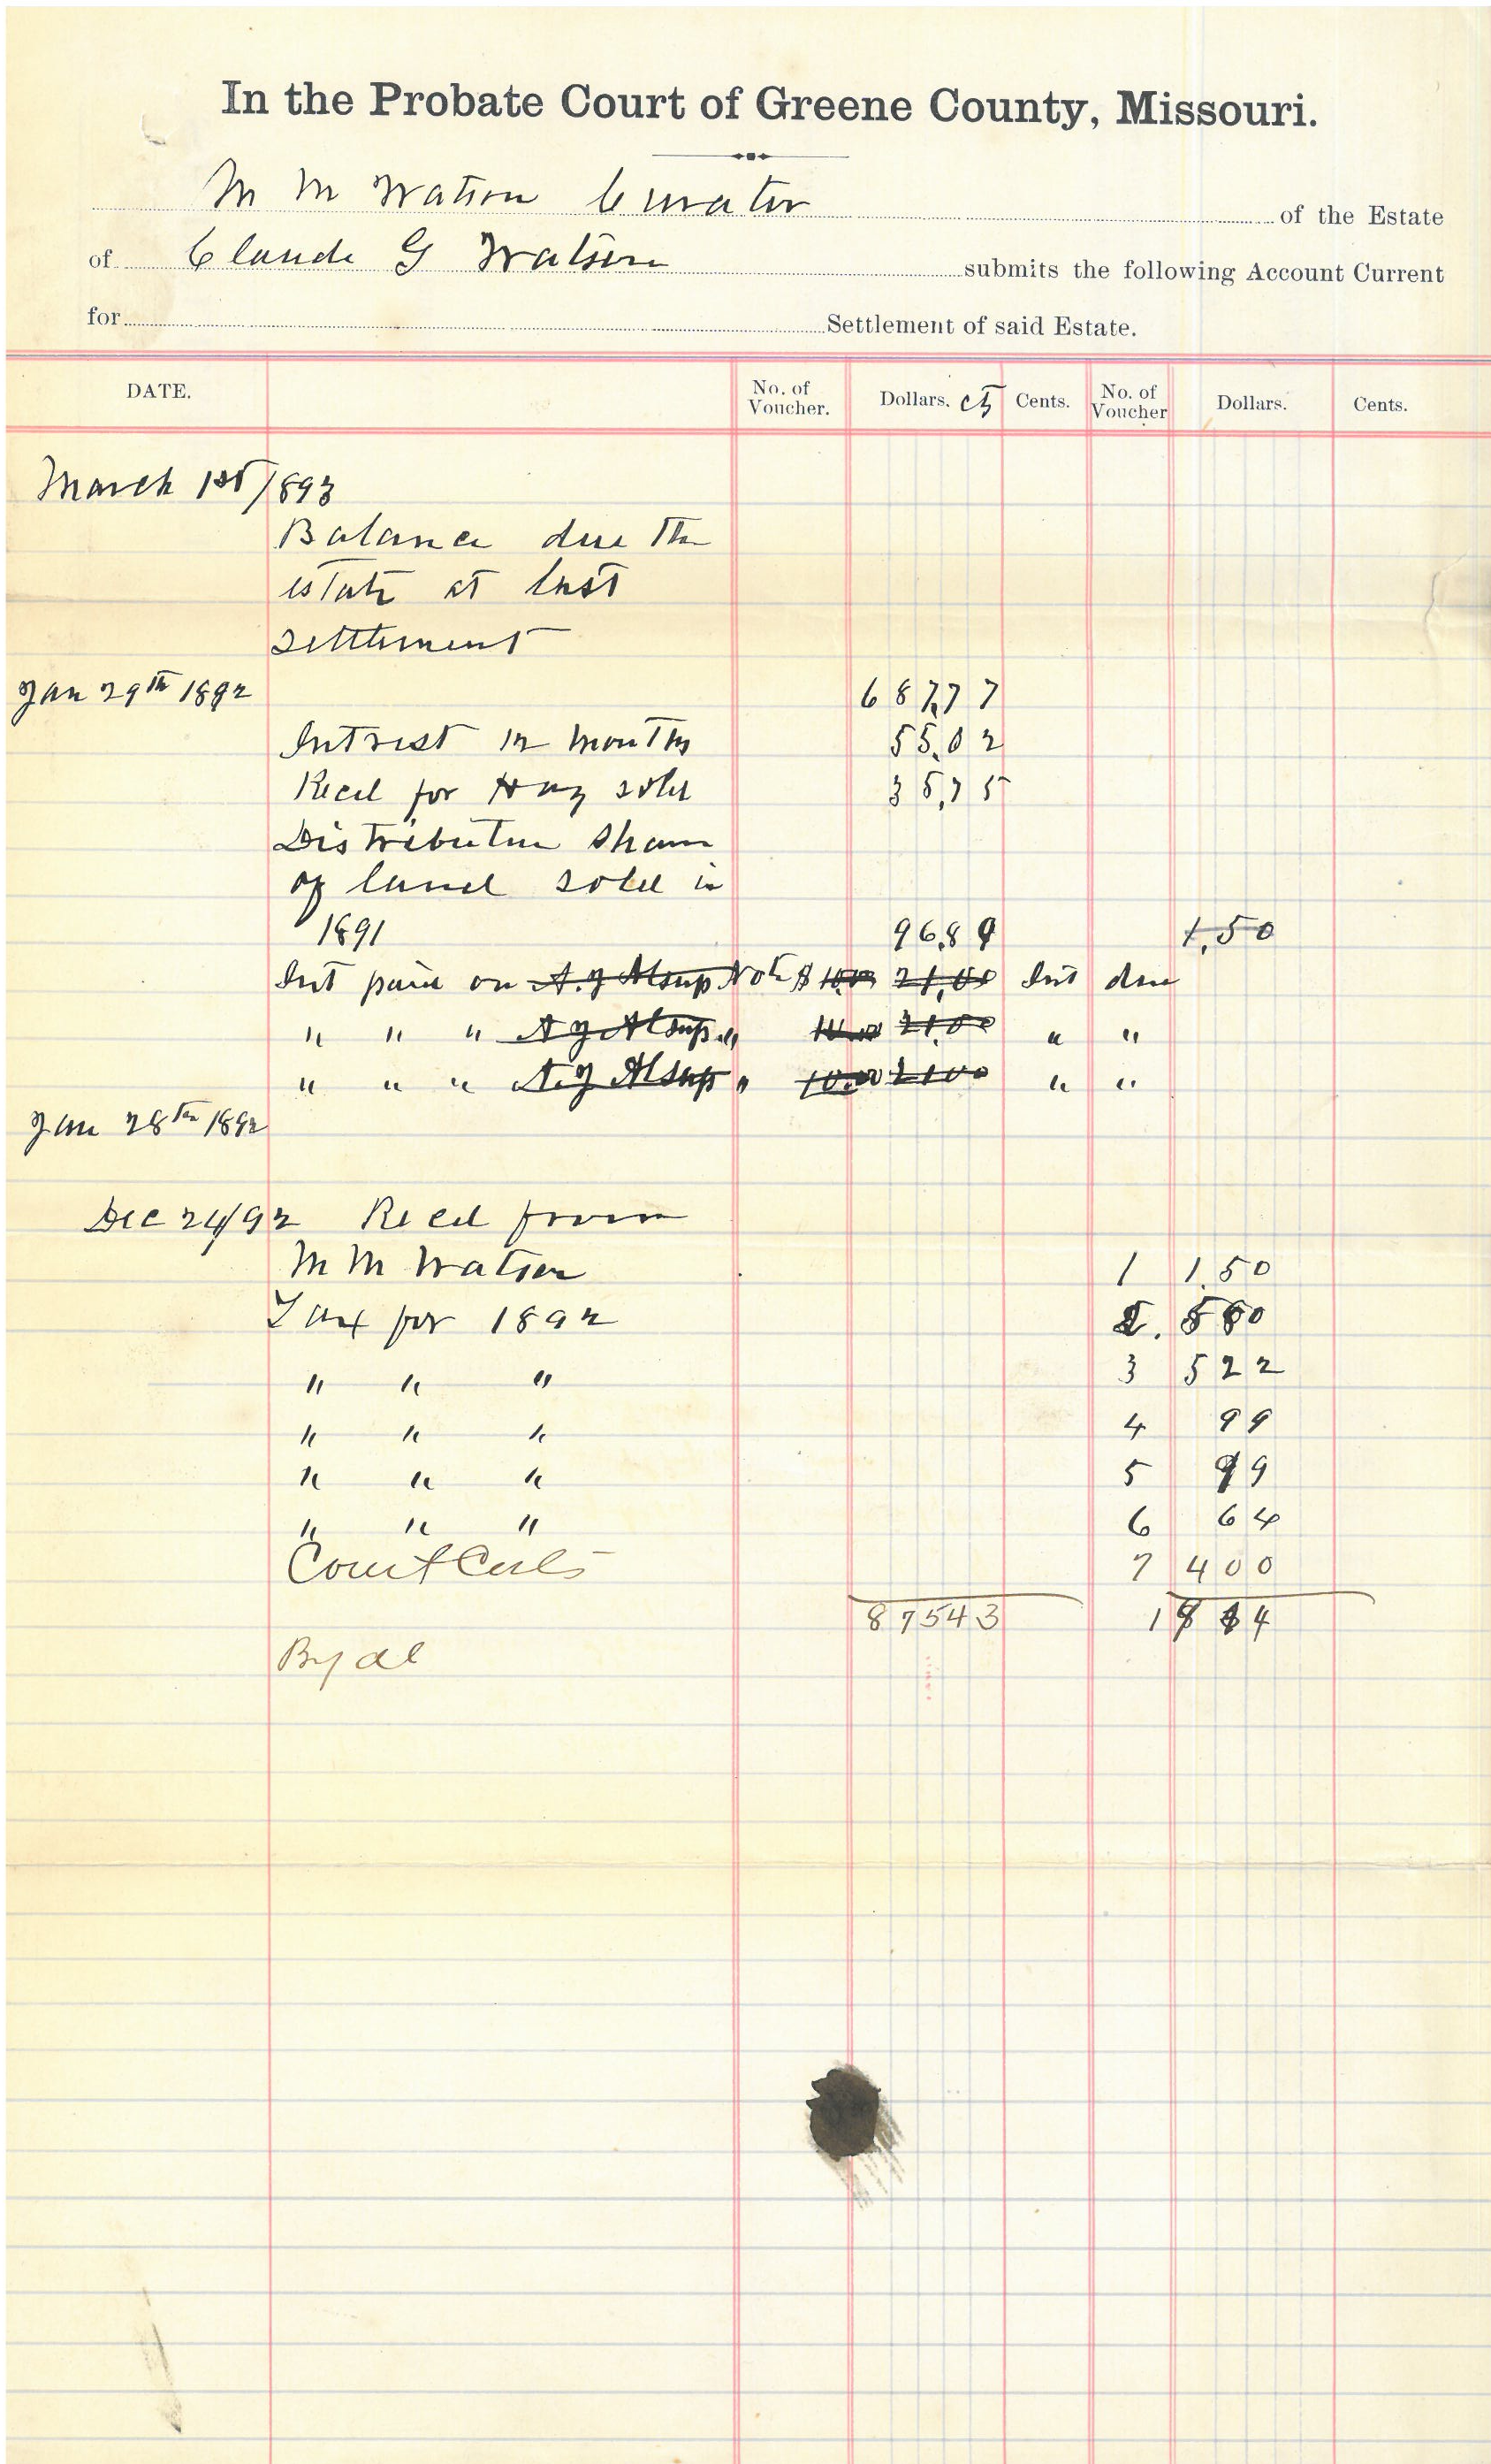 In the Probate Court of Greene County, Missouri.
M M Watson Curator of the Estate
of Claude G Watson submits the following Account Current
for Settlement of said Estate.
DATE. No. of Voucher. Dollars. cts Cents. No. of Voucher Dollars. Cents.
March 1st/893
Balance due the
estate at last
settlement
Jan 29th 1892 687,77
Intrest 12 months 55,02
Recd for Hay sold 35,75
Distributive share
of land sold in
1891 96,89 1,50
Int paid on A. J Alsup Note $ 10.00 21,00 Int due
" " " A J Alsup " 10.00 21,00 " "
" " " A. J Alsup " 10.00 2100 " "
Jan 28th 1892
Dec 24/92 Recd from
M M Watson 1 1,50
Tax for 1892 2. 550
" " " 3 522
" " " 4 99
" " " 5 99
" " " 6 64
Court Costs 7 400
87543 1884
By al